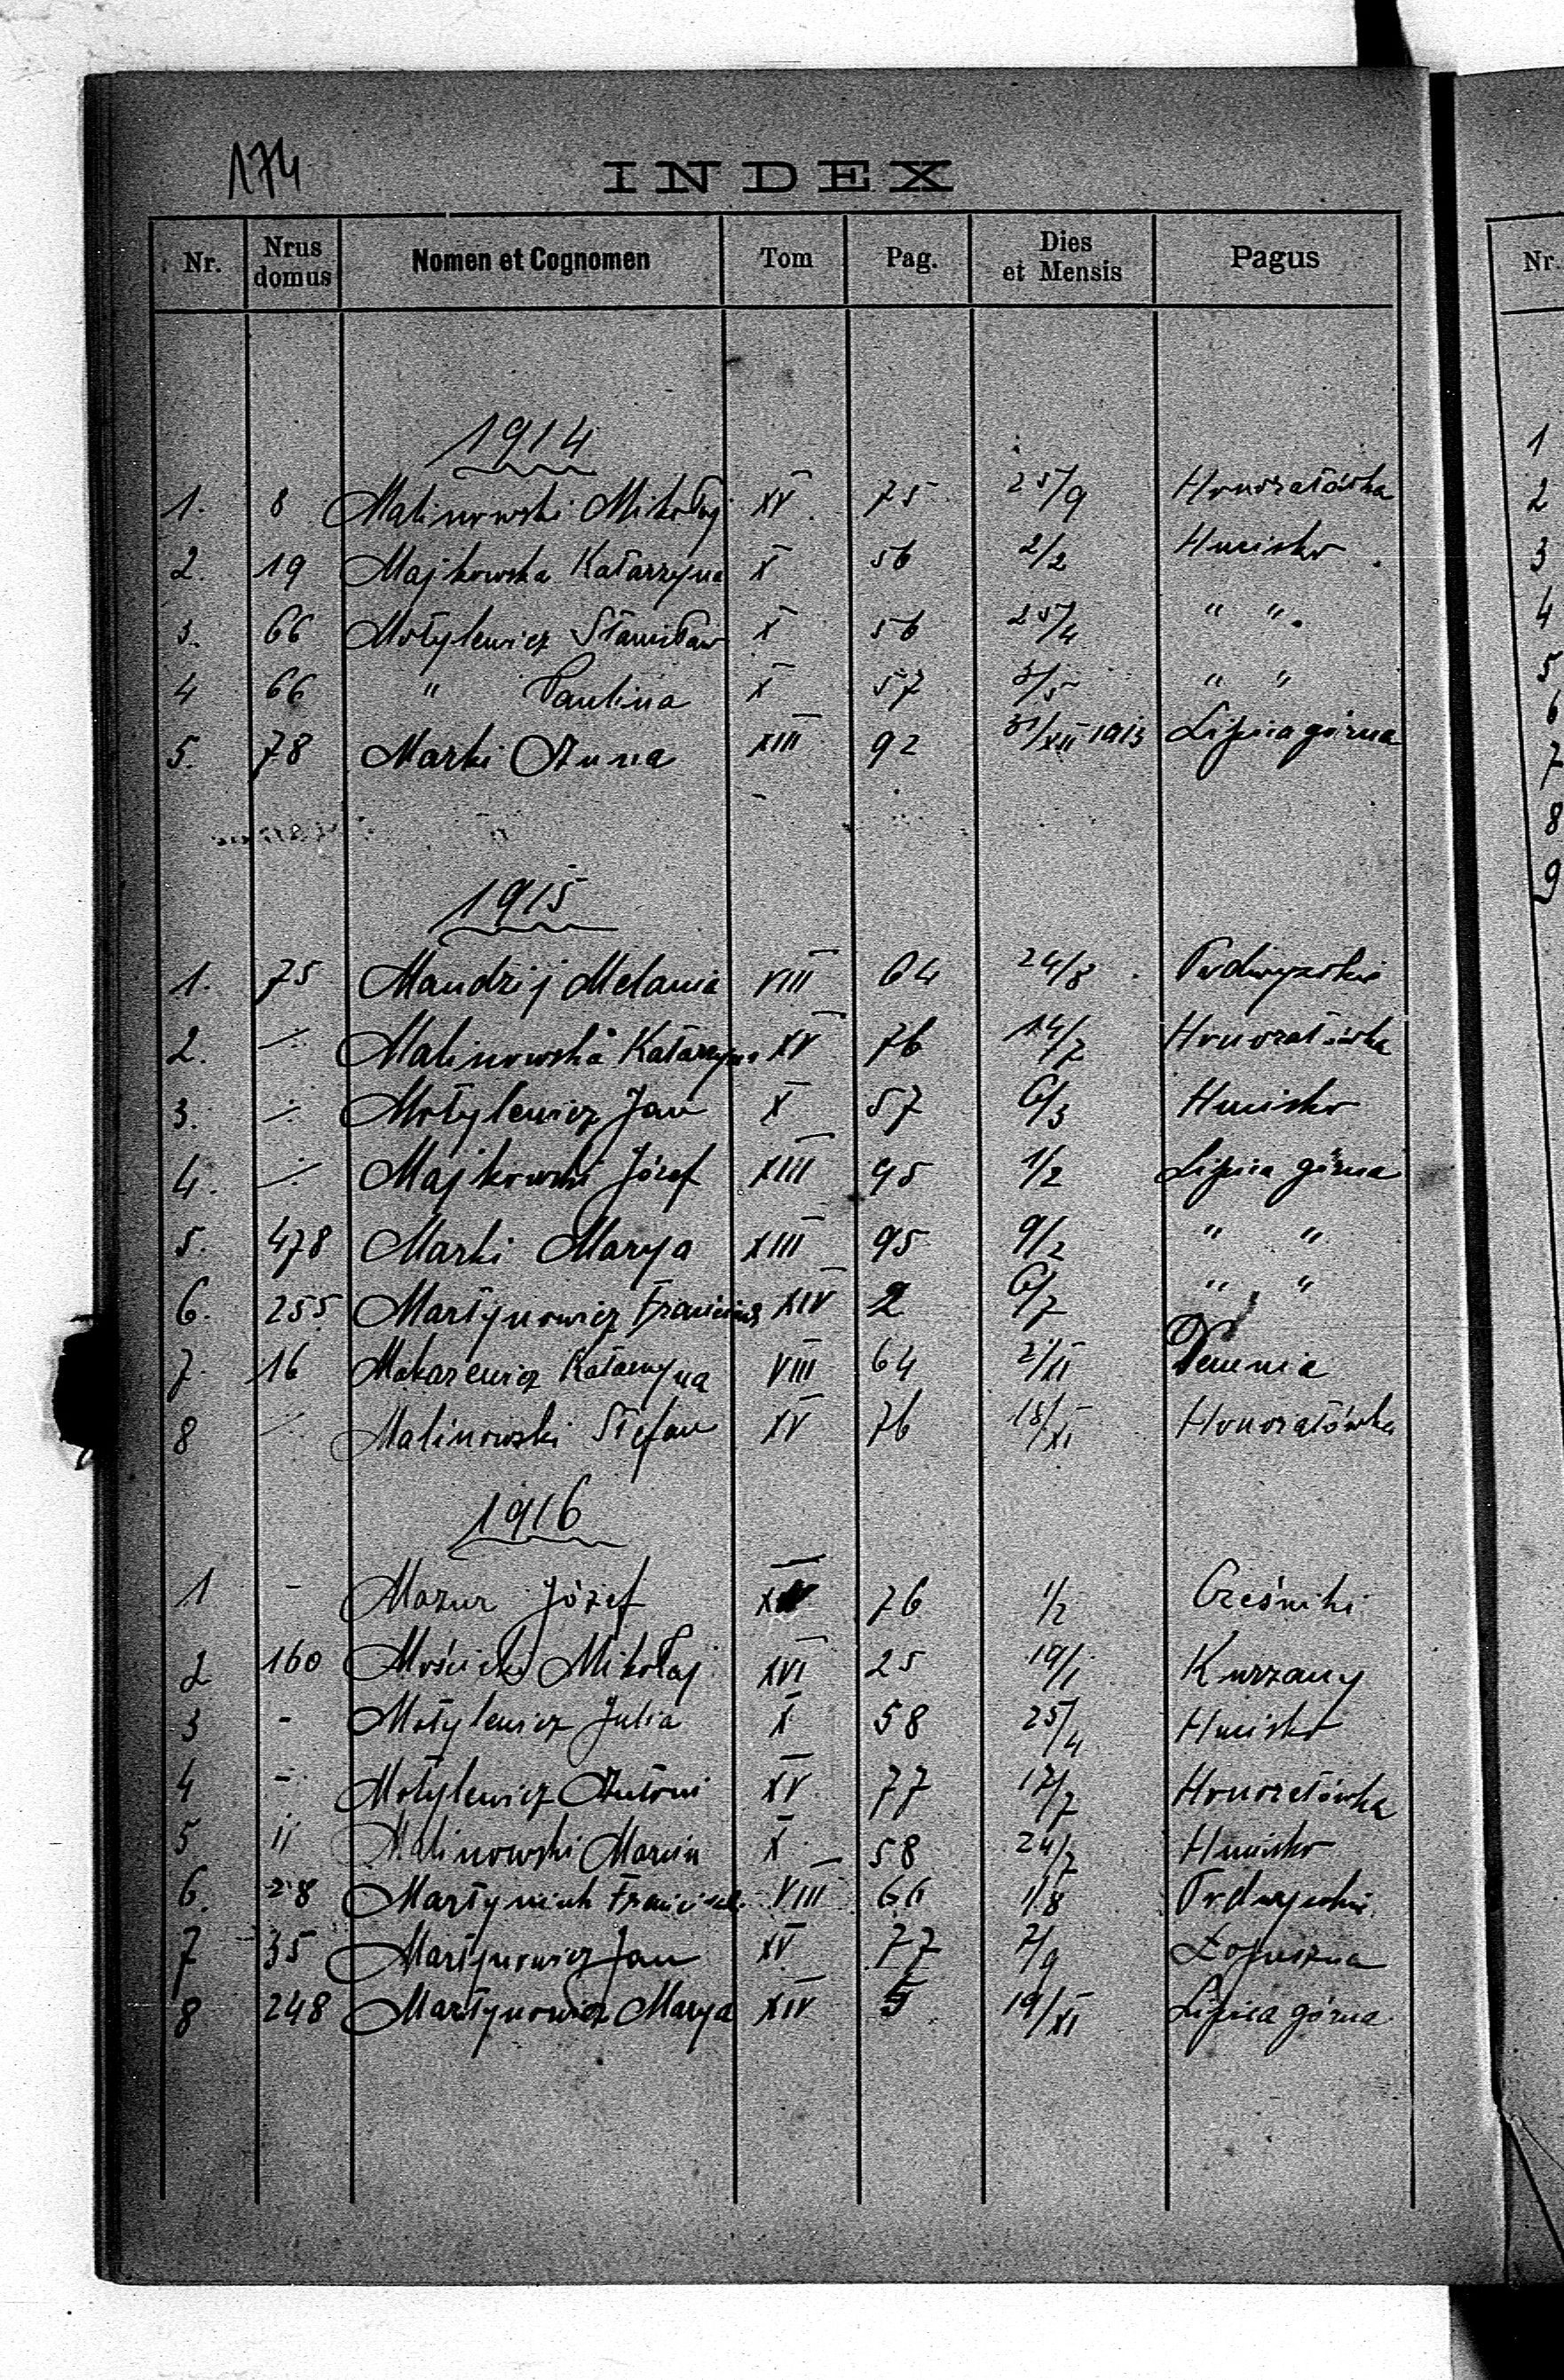 174
INDEX
Nr. Nrus domus Nomen et Cognomen Tom Pag. Dies et Mensis Pagus
1914
1. 8 Malinowski Mikołaj XV 75 25/9 Honoratówka
2. 19 Majkowska Katarzyna X 56 2/2 Hucisko
3. 66 Motylewicz Stanisław X 56 25/4 " "
4 66 " Paulina X 57 3/5 " "
5. 78 Marki Anna XIII 92 31/XII 1913 Lipica górna
1915
1. 75 Mandzij Melania VIII 64 24/8 Podwysokie
2. ⁒ Malinowska Katarzyna XV 76 14/7 Honoratówka
3. ⁒ Motylewicz Jan X 57 6/3 Hucisko
4. ⁒ Majkowski Józef XIII 95 1/2 Lipica górna
5. 478 Marki Marya XIII 95 9/2 " "
6. 255 Martynowicz XIV 2 6/7 " "
7. 16 Makarewicz Katarzyna VIII 64 2/XI Demnia
8 ⁒ Malinowski Stefan XV 76 18/XI Honoratówka
1916
1 - Mazur Józef 76 1/2 Cześniki
2 160 Mościcki Mikołaj XVI 25 19/1 Kurzany
3 - Motylewicz Julia X 58 25/4 Hucisko
4 - Motylewicz Antoni XV 77 17/7 Honoratówka
5 11 Malinowski Marcin X 58 24/7 Hucisko
6. 28 Martyniuk VIII 66 1/8 Podwysokie
7 35 Martynowicz Jan XV 77 7/9 Łopuszna
8 248 Martynowicz Marya XIV 5 19/XI Lipica górna
Nr
1
2
3
4
5
6
7
8
9